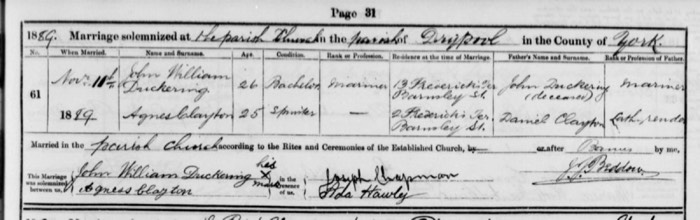 Page 31
1889. Marriage solemnized at the parish Church in the parish of Drypool in the County of York.
No. When Married. Name and Surname. Age. Condition. Rank or Profession. Residence at the time of Marriage. Father's Name and Surname. Rank or Profession of Father.
61 Novr. 11th 1889 John William Duckering 26 Bachelor Mariner 13 Frederick's Ter. Barnsley St. John Duckering (deceased) Mariner
Agnes Clayton 25 Spinster — 2 Frederick's Ter. Barnsley St. Daniel Clayton Lath render
Married in the parish church according to the Rites and Ceremonies of the Established Church, by or after Banns by me,
This Marriage was solemnized between us, John William Duckering his X mark in the presence of us, Joseph Chapman
Agness Clayton Ada Hawley J. Beddow